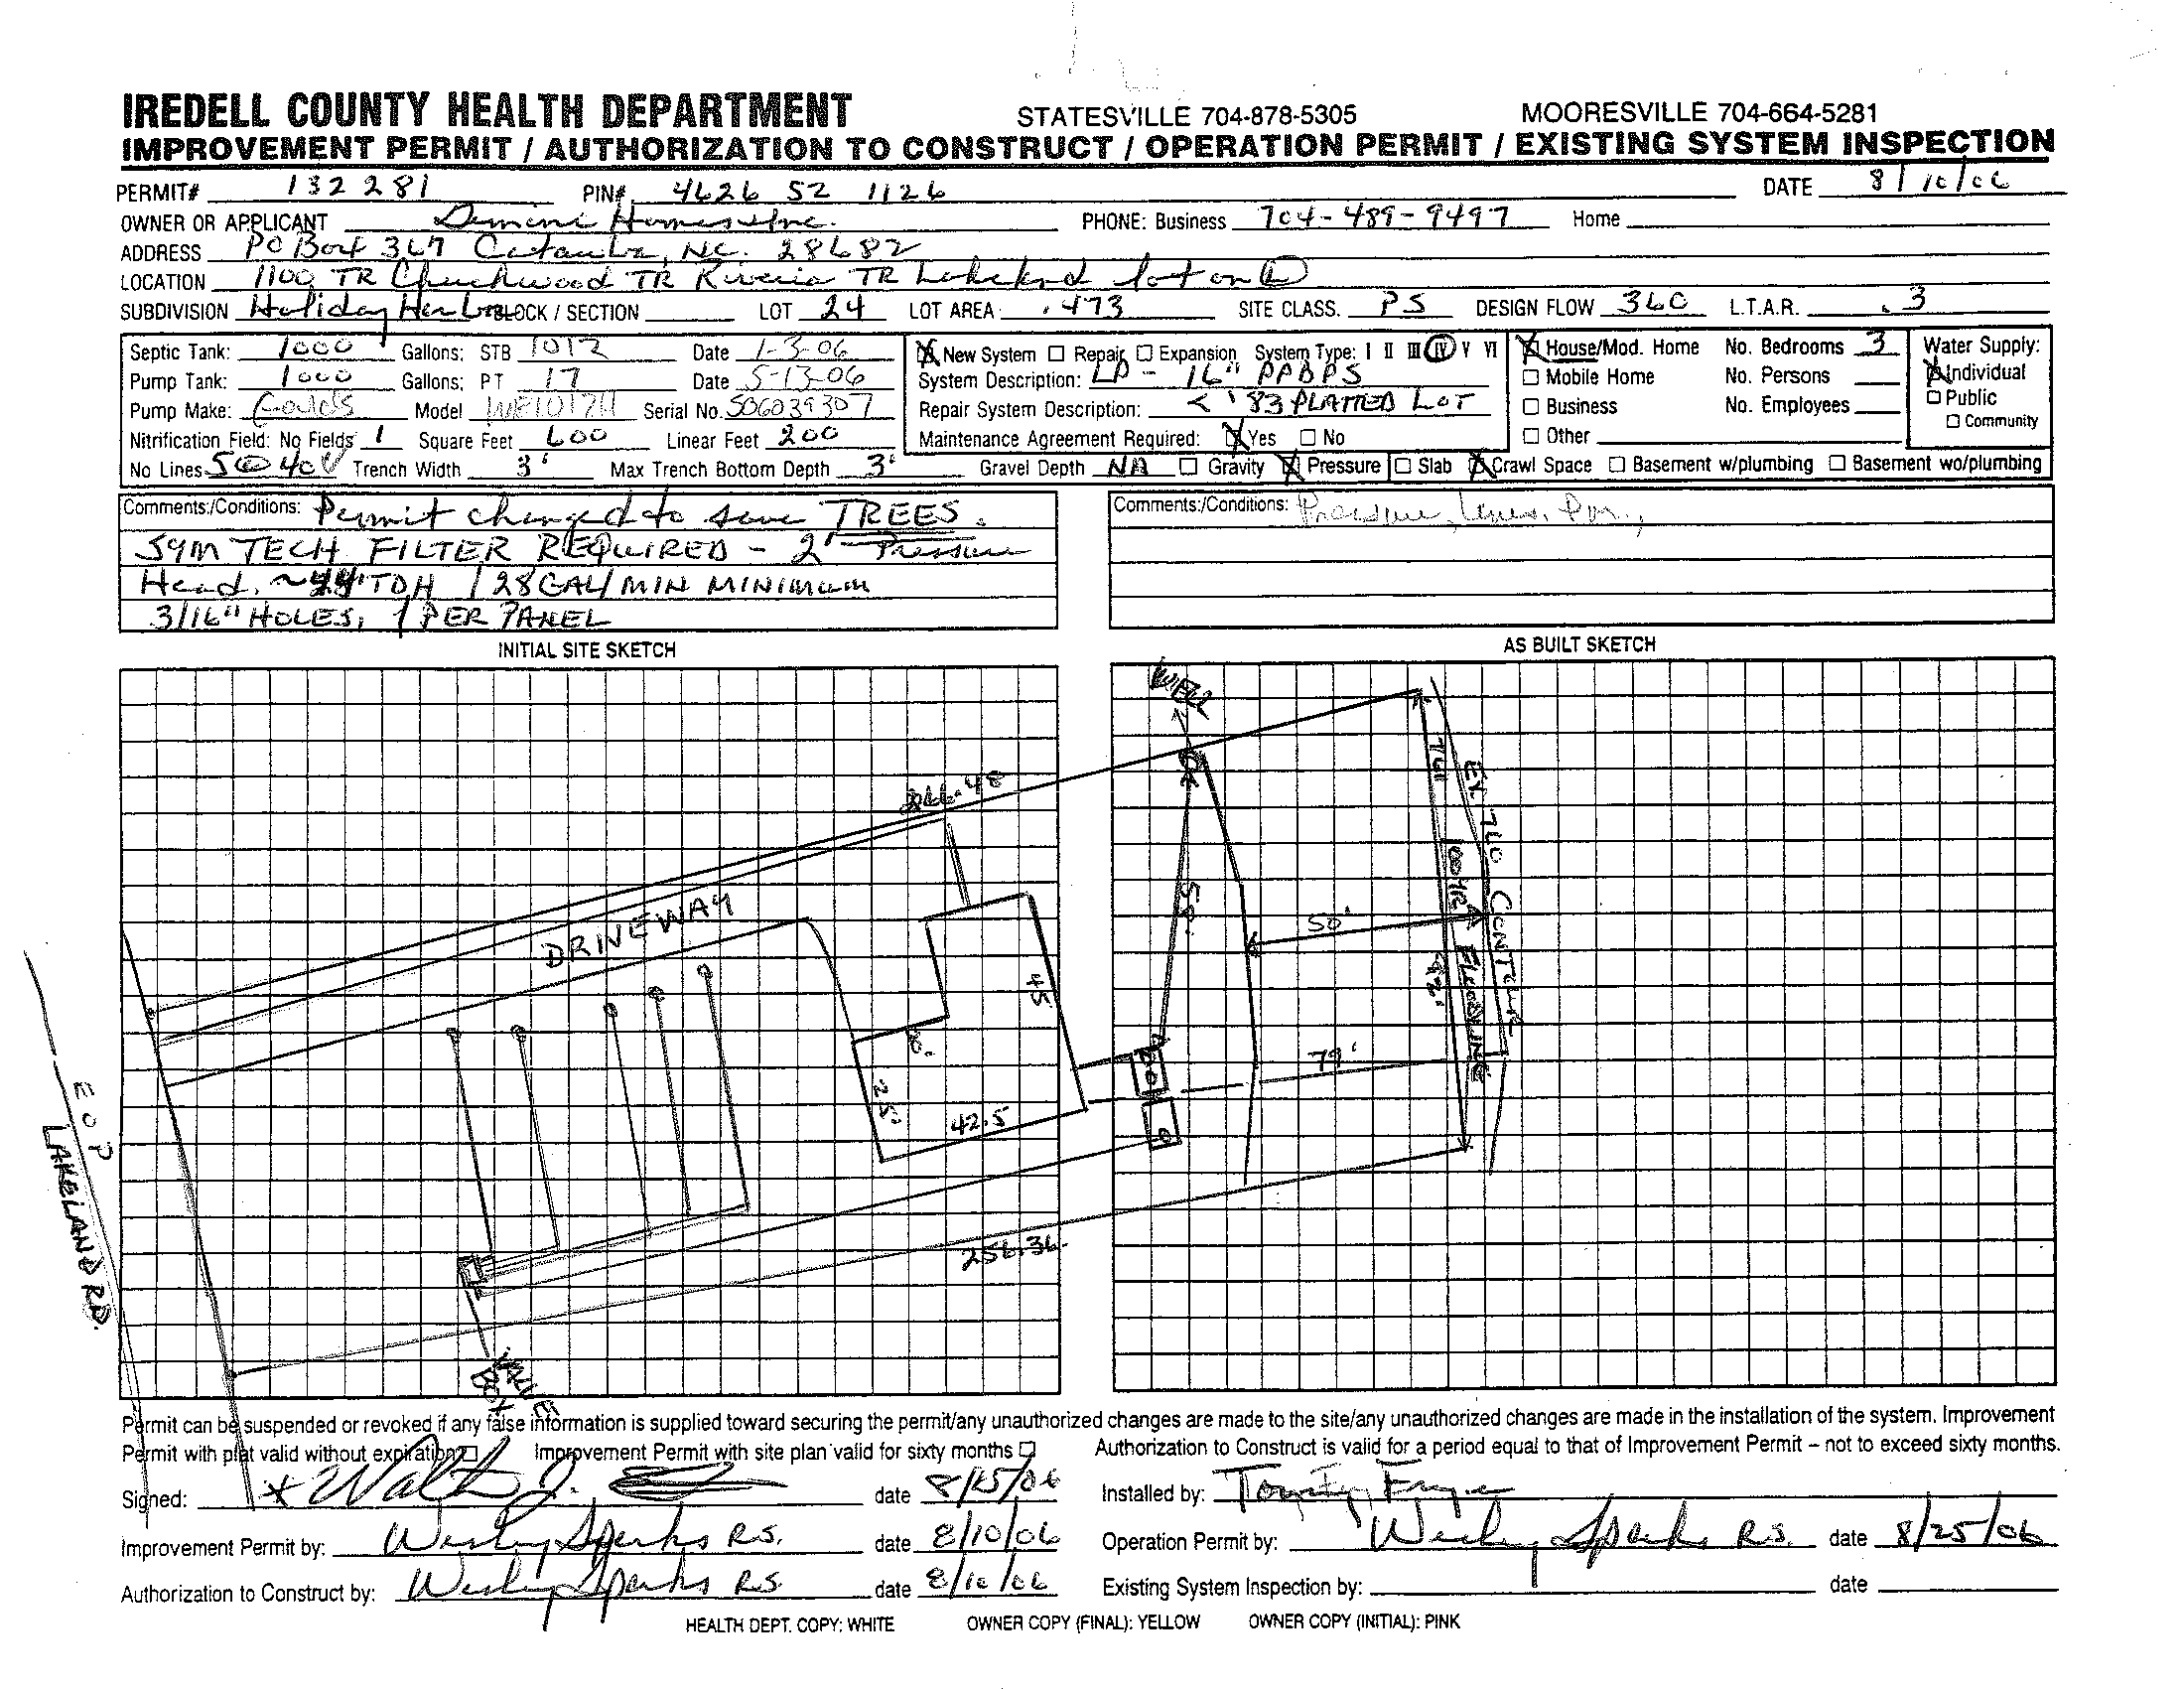 IREDELL COUNTY HEALTH DEPARTMENT STATESVILLE 704-878-5305 MOORESVILLE 704-664-5281
IMPROVEMENT PERMIT / AUTHORIZATION TO CONSTRUCT / OPERATION PERMIT / EXISTING SYSTEM INSPECTION
PERMIT# 132281 PIN# 4626 52 1126 DATE 8/10/06
OWNER OR APPLICANT Homes Inc. PHONE: Business 704-489-9497 Home
ADDRESS PO Box 367 Catawba, NC. 28682
LOCATION 1100 TR TR TR lot on L
SUBDIVISION Holiday Harbor BLOCK / SECTION LOT 24 LOT AREA .473 SITE CLASS. PS DESIGN FLOW 360 L.T.A.R. .3
Septic Tank: 1000 Gallons; STB 1012 Date 1-3-06 X New System Repair Expansion System Type: I II III IV V VI X House/Mod. Home No. Bedrooms 3 Water Supply:
Pump Tank: 1000 Gallons; PT 17 Date 5-13-06 System Description: LP - 16" PPBPS Mobile Home No. Persons X Individual
Pump Make: Goulds Model Serial No. S06039307 Repair System Description: < '83 PLATTED LOT Business No. Employees Public
Nitrification Field: No Fields 1 Square Feet 600 Linear Feet 200 Maintenance Agreement Required: X Yes No Other Community
No Lines 5@40' Trench Width 3' Max Trench Bottom Depth 3' Gravel Depth NA Gravity X Pressure Slab X Crawl Space Basement w/plumbing Basement wo/plumbing
Comments:/Conditions: Permit changed to save TREES. Comments:/Conditions:
TECH FILTER REQUIRED - 2' Pressure
Head. TDH / 28 GAL/MIN MINIMUM
3/16" HOLES, 1 PER PANEL
INITIAL SITE SKETCH AS BUILT SKETCH
WELL
761
EX 760 CONTOUR
100 YR FLOODLINE
58'
50'
92'
79'
DRIVEWAY
45'
8'
25'
42.5
256.36
EOP
LAKELAND RD.
VALVE BOX
Permit can be suspended or revoked if any false information is supplied toward securing the permit/any unauthorized changes are made to the site/any unauthorized changes are made in the installation of the system. Improvement
Permit with plat valid without expiration Improvement Permit with site plan valid for sixty months Authorization to Construct is valid for a period equal to that of Improvement Permit – not to exceed sixty months.
Signed: Walt J. date 8/25/06 Installed by:
Improvement Permit by: Wesley Sparks R.S. date 8/10/06 Operation Permit by: Wesley Sparks R.S. date 8/25/06
Authorization to Construct by: Wesley Sparks R.S. date 8/10/06 Existing System Inspection by: date
HEALTH DEPT. COPY: WHITE OWNER COPY (FINAL): YELLOW OWNER COPY (INITIAL): PINK